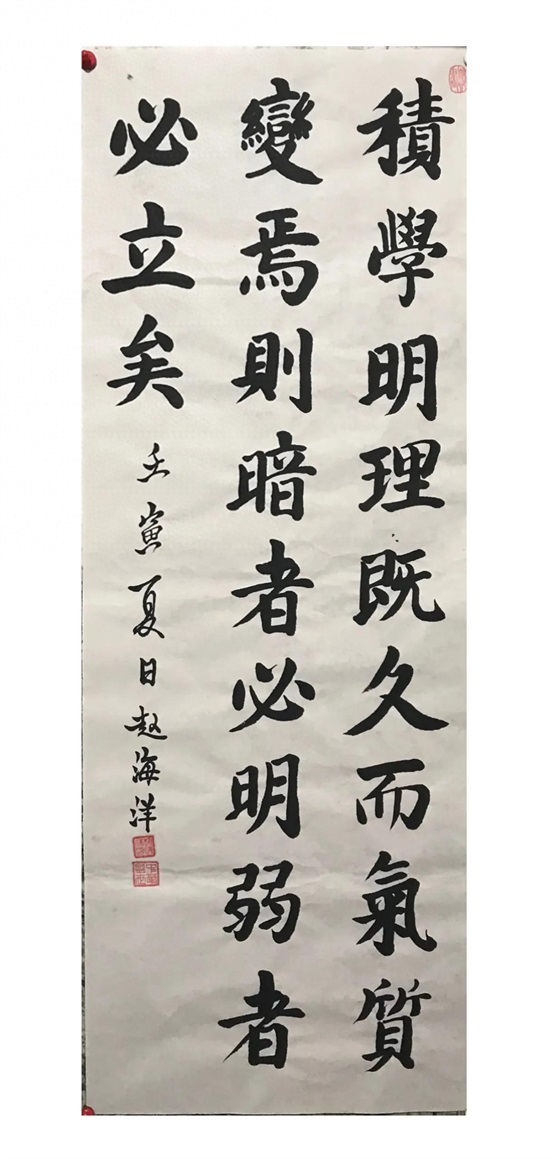 積學明理既久而氣質
變焉則暗者必明弱者
必立矣
壬寅夏日赵海洋